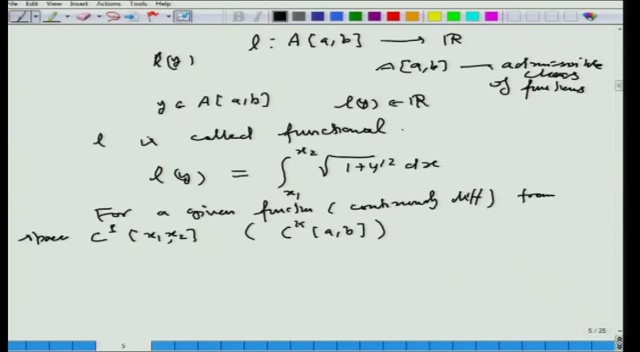 File Edit View Insert Actions Tools Help
l : A[a,b] → ℝ
l(y)
A[a,b] — admissible class of functions
y ∈ A[a,b] l(y) ∈ ℝ
l is called functional.
l(y) = ∫_{x₁}^{x₂} √(1+y'²) dx
For a given function (continuously diff) from
space C¹[x₁,x₂] ( Cᵏ[a,b] )
5 / 25
5